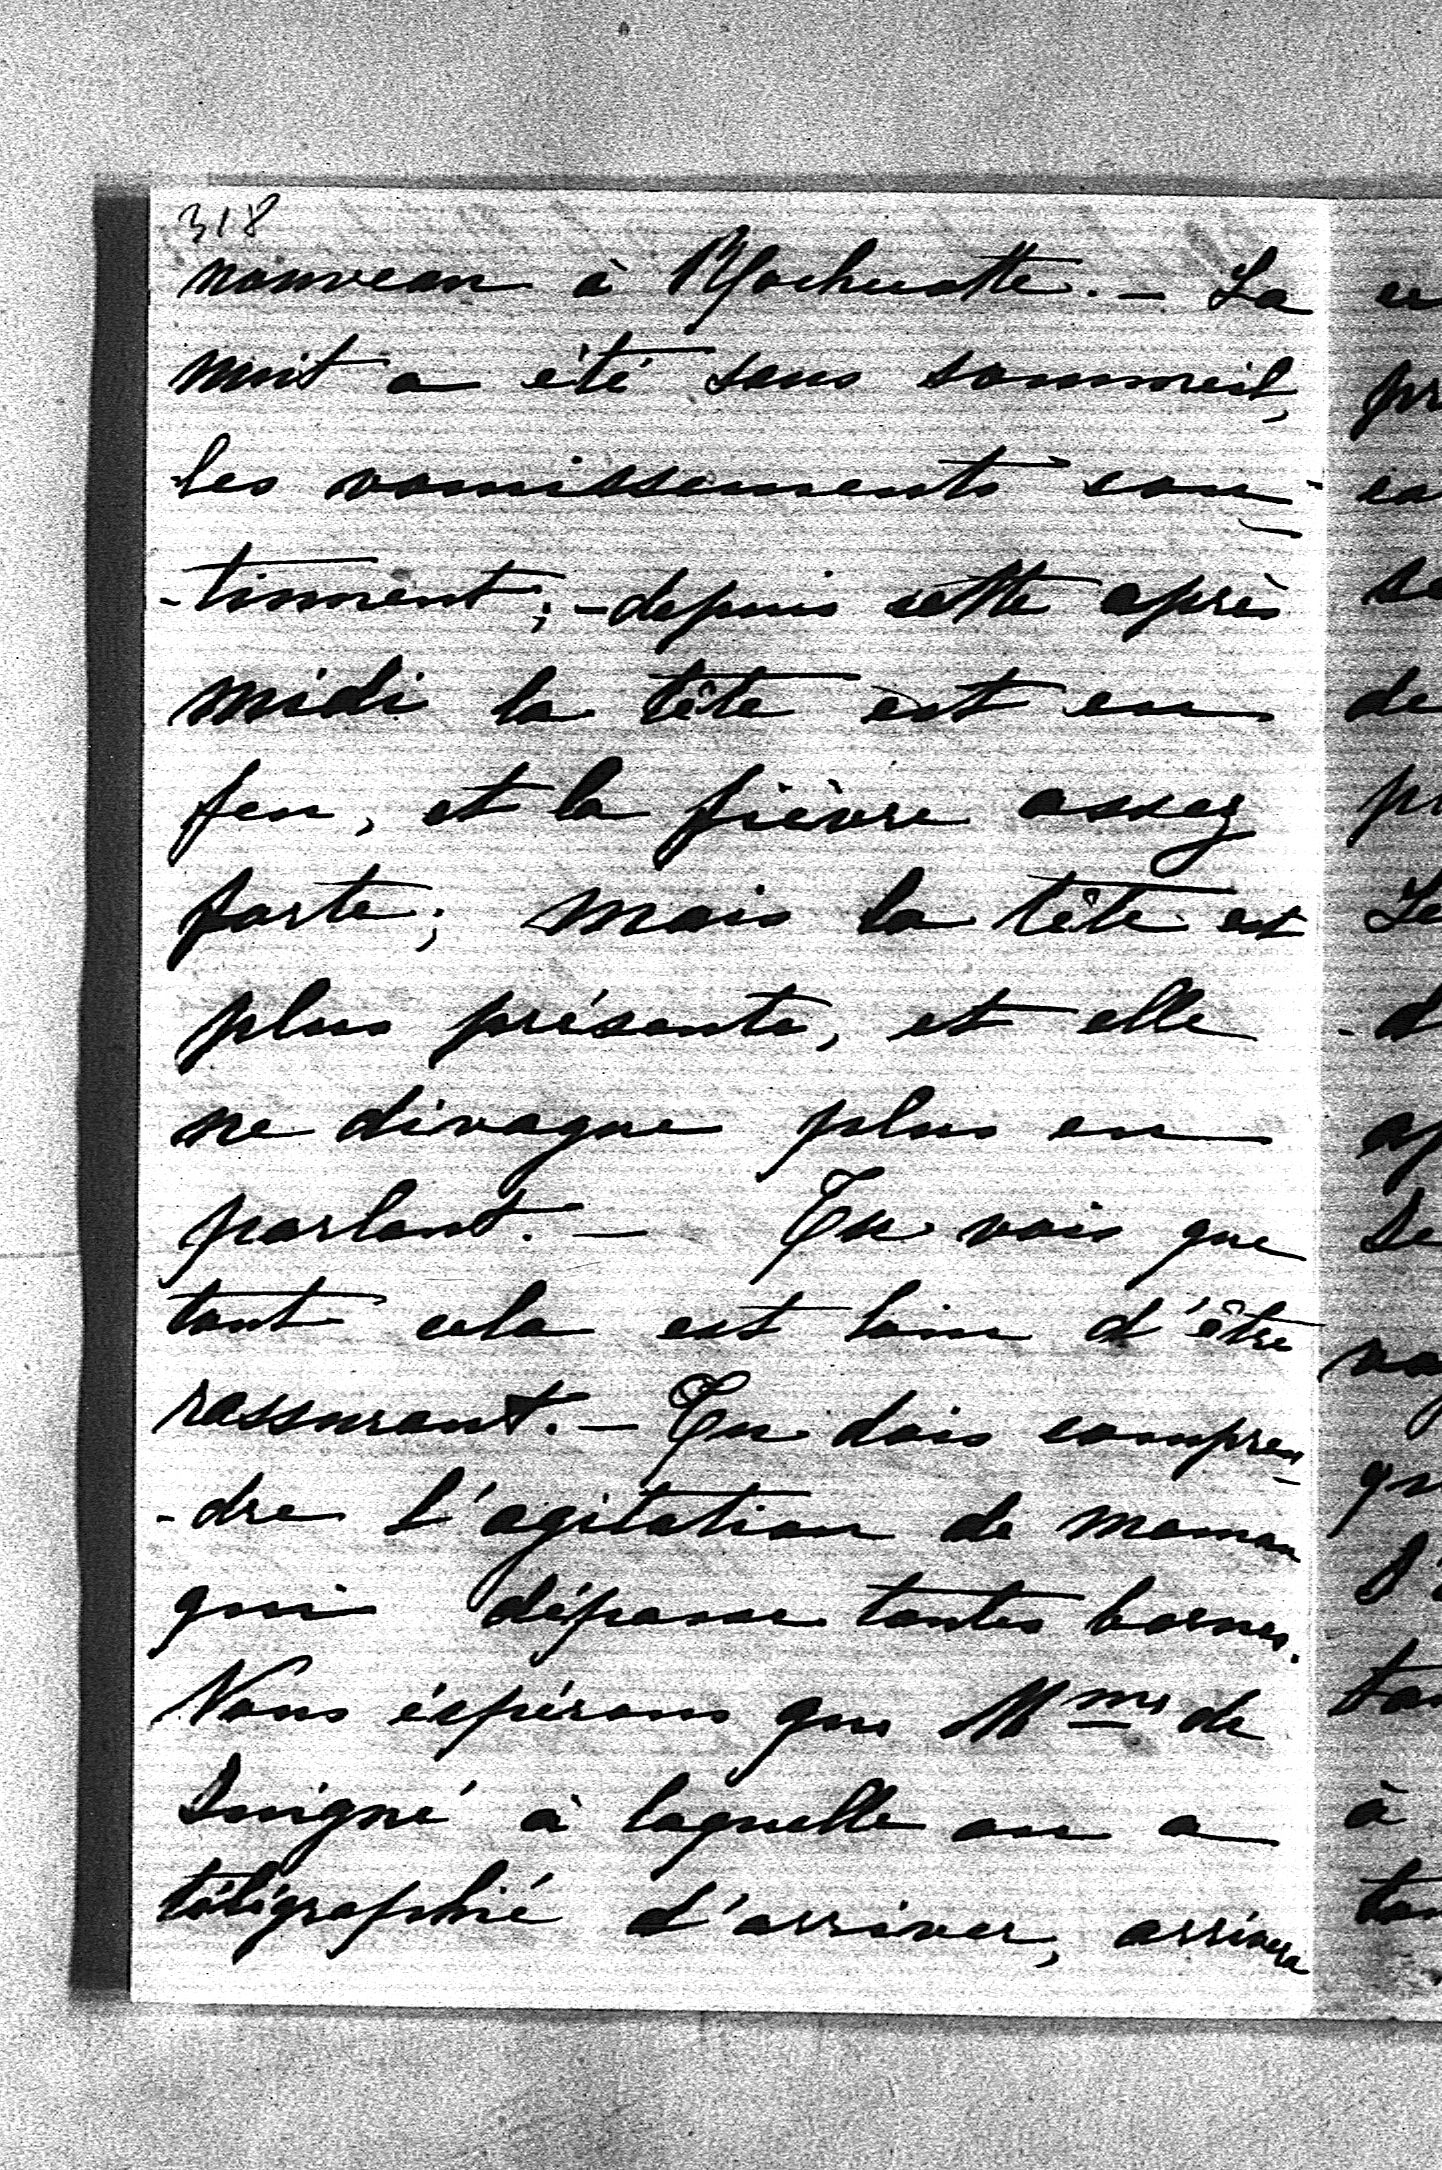 318
nouveau à Rochecotte. - La
nuit a été sans sommeil,
les vomissements con-
-tinuent; - depuis cette après
midi la tête est en
feu, et la fièvre assez
forte; mais la tête est
plus présente, et elle
ne divague plus en
parlant. - Tu vois que
tout cela est loin d'être
rassurant. - Tu dois compren-
-dre l'agitation de maman
qui dépasse toutes bornes.
Nous éspérons que Mme de
à laquelle on a
télégraphié d'arriver, arrivera